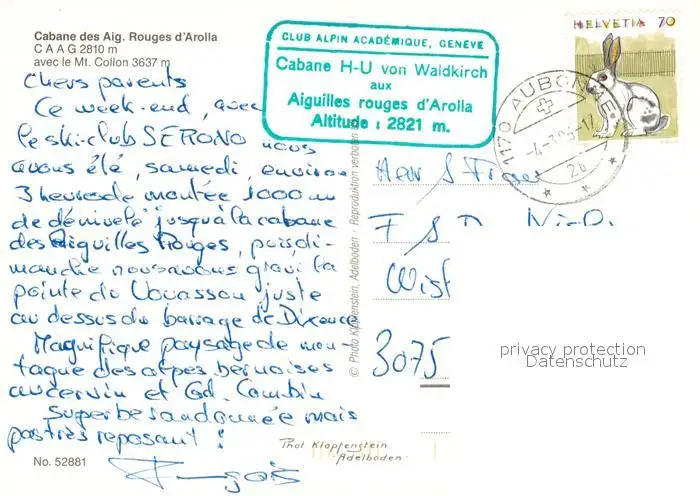 Cabane des Aig. Rouges d'Arolla
C A A G 2810 m
avec le Mt. Collon 3637 m
CLUB ALPIN ACADÉMIQUE, GENÈVE
Cabane H-U von Waldkirch
aux
Aiguilles rouges d'Arolla
Altitude : 2821 m.
HELVETIA 70
1170 AUBONNE
2b
Chers parents
Ce week-end, avec
le ski-club SERONO nous
avons été, samedi, environ
3 heures de montée 1000 m
de dénivelé jusqu'à la cabane
des Aiguilles Rouges, puis di-
manche nous avons gravi la
pointe du Vouasson juste
au dessus du barrage de Dixence
Magnifique paysage de mon-
tagne des alpes bernoises
au cervin et Gd. Combin
Superbe randonnée mais
pas très reposant !
François
Herr S
F S D
Wist
3075
© Photo Klopfenstein, Adelboden · Reproduktion verboten
privacy protection
Datenschutz
Phot Klopfenstein
Adelboden
No. 52881